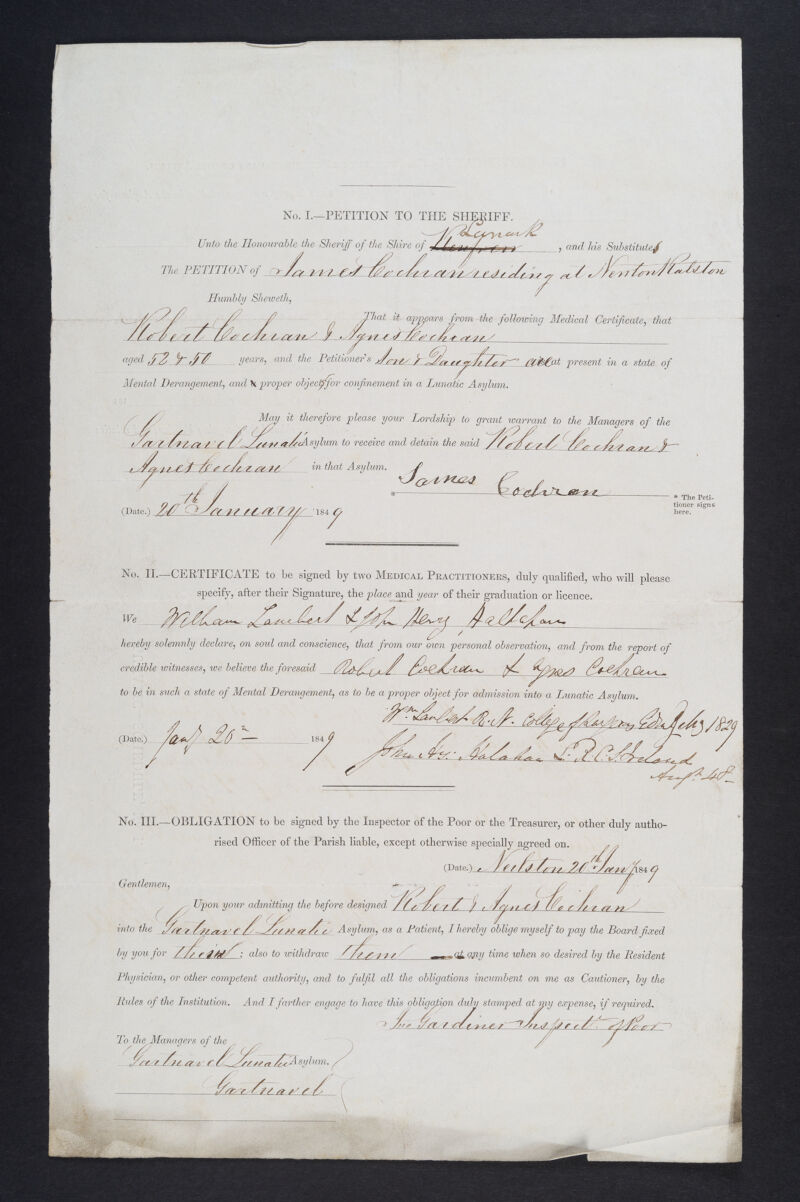 No. I.—PETITION TO THE SHERIFF.
Lanark
Unto the Honourable the Sheriff of the Shire of Renfrew, and his Substitutes
The PETITION of James Cochran residing at Newton Ralston
Humbly Sheweth,
That it appears from the following Medical Certificate, that
Robert Cochran & Agnes Cochran
aged 52 & 50 years, and the Petitioner's Son & Daughter are at present in a state of
Mental Derangement, and proper objects for confinement in a Lunatic Asylum.
May it therefore please your Lordship to grant warrant to the Managers of the
Gartnavel Lunatic Asylum to receive and detain the said Robert Cochran &
Agnes Cochran in that Asylum.
* James Cochran
* The Peti-
tioner signs
here.
(Date.) 20th January 1849
No. II.—CERTIFICATE to be signed by two Medical Practitioners, duly qualified, who will please
specify, after their Signature, the place and year of their graduation or licence.
We William Lambert & John Henry
hereby solemnly declare, on soul and conscience, that from our own personal observation, and from the report of
credible witnesses, we believe the foresaid Robert Cochran & Agnes Cochran
to be in such a state of Mental Derangement, as to be a proper object for admission into a Lunatic Asylum.
Wm Lambert R. N. College of Surgeons Edin 1829
(Date.) Jany 20th 1849
John Hy: L. R. C. S. Ireland
Augt 48
No. III.—OBLIGATION to be signed by the Inspector of the Poor or the Treasurer, or other duly autho-
rised Officer of the Parish liable, except otherwise specially agreed on.
(Date.) Neilston 20th Jany 1849
Gentlemen,
Upon your admitting the before designed Robert & Agnes Cochran
into the Gartnavel Lunatic Asylum, as a Patient, I hereby oblige myself to pay the Board fixed
by you for them; also to withdraw them at any time when so desired by the Resident
Physician, or other competent authority, and to fulfil all the obligations incumbent on me as Cautioner, by the
Rules of the Institution. And I farther engage to have this obligation duly stamped at my expense, if required.
Jno Gardiner Inspectr of Poor
To the Managers of the
Gartnavel Lunatic Asylum.
Gartnavel